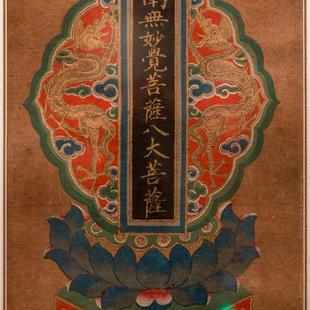 南無妙覺菩薩八大菩薩